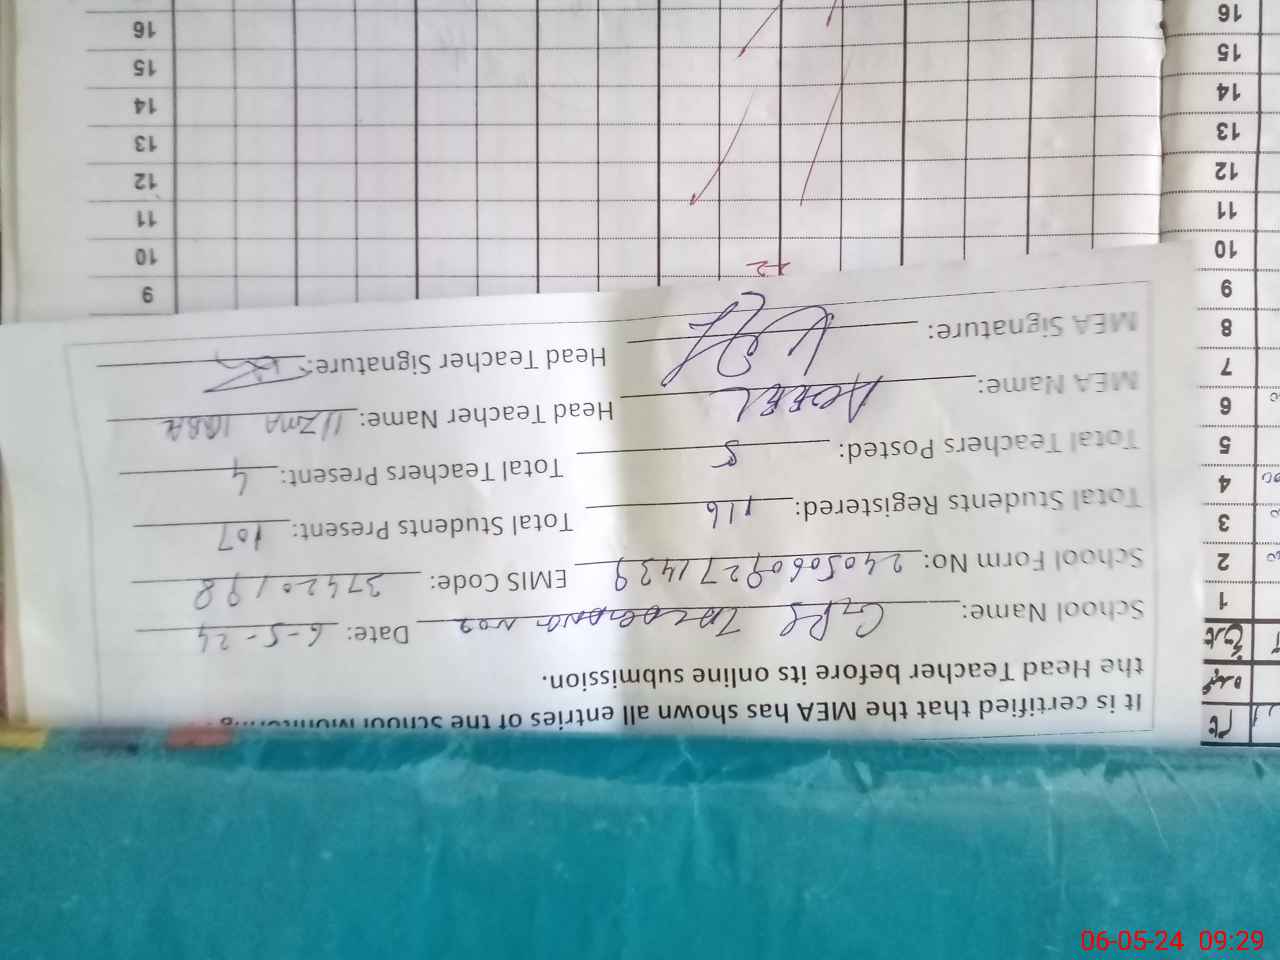 It is certified that the MEA has shown all entries of the School
the Head Teacher before its online submission.
School Name: GPS No 2 Date: 6-5-24
School Form No: 24050609271439 EMIS Code: 37420198
Total Students Registered: 116 Total Students Present: 107
Total Teachers Posted: 5 Total Teachers Present: 4
MEA Name: Head Teacher Name: UZMA IQBAL
MEA Signature: Head Teacher Signature:
1
2
3
4
5
6
7
8
9
10
11
12
13
14
15
16
9
10
11
12
13
14
15
16
06-05-24 09:29